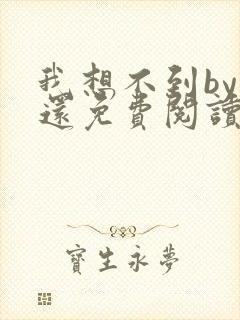 我想不到by
還免費閱讀
寶生永夢